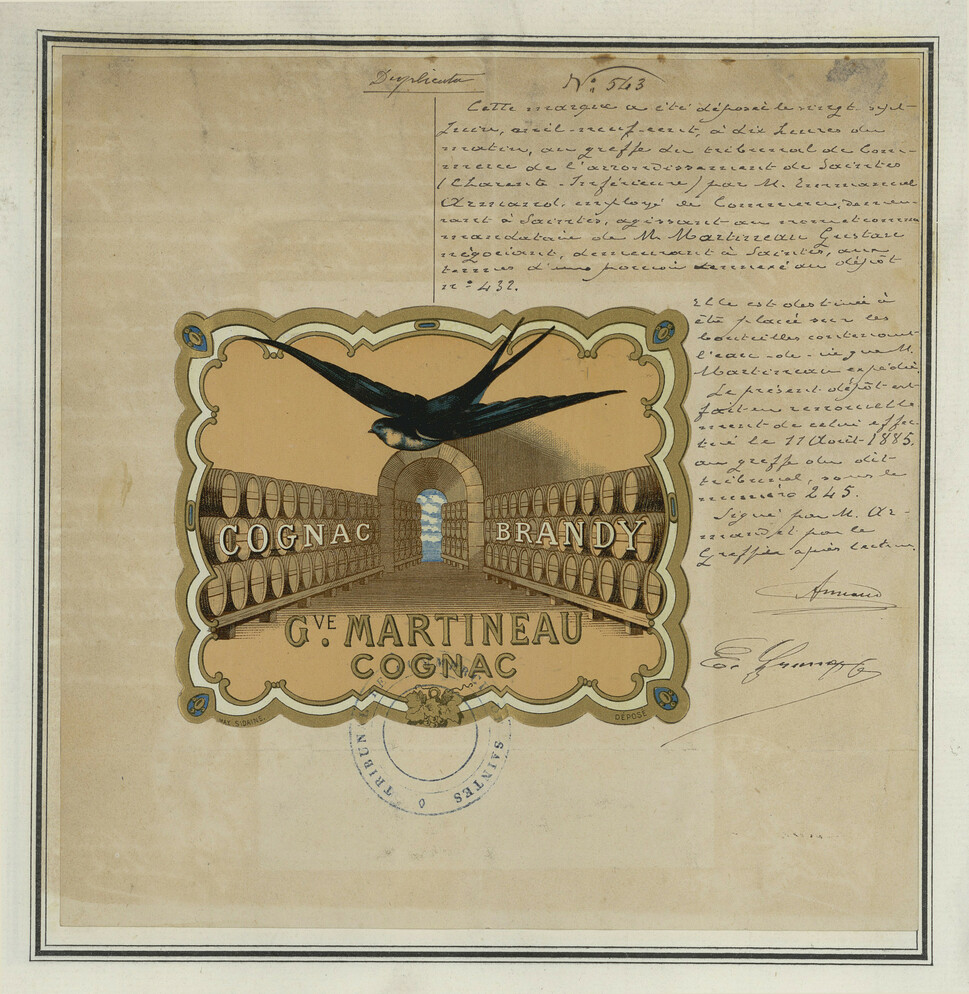 Duplicata
N° 543
Cette marque a été déposée le vingt-sept
Juin, mil-neuf-cent, à dix heures du
matin, au greffe du tribunal de Com-
merce de l'arrondissement de Saintes
(Charente-Inférieure) par M. Emmanuel
Armand, employé de Commerce, demeu-
rant à Saintes, agissant au nom et comme
mandataire de M. Martineau Gustave
négociant, demeurant à Saintes, aux
termes d'un pouvoir annexé au dépôt
n° 432.
Elle est destinée à
être placée sur les
bouteilles contenant
l'eau-de-vie que M.
Martineau expédie.
Le présent dépôt est
fait en renouvelle-
ment de celui effec-
tué le 11 Août 1885,
au greffe du dit
tribunal, sous le
numéro 245.
Signé par M. Ar-
mand et par le
Greffier après lecture.
Armand
COGNAC BRANDY
GVE. MARTINEAU
COGNAC
DÉPOSÉ
TRIBUN
SAINTES